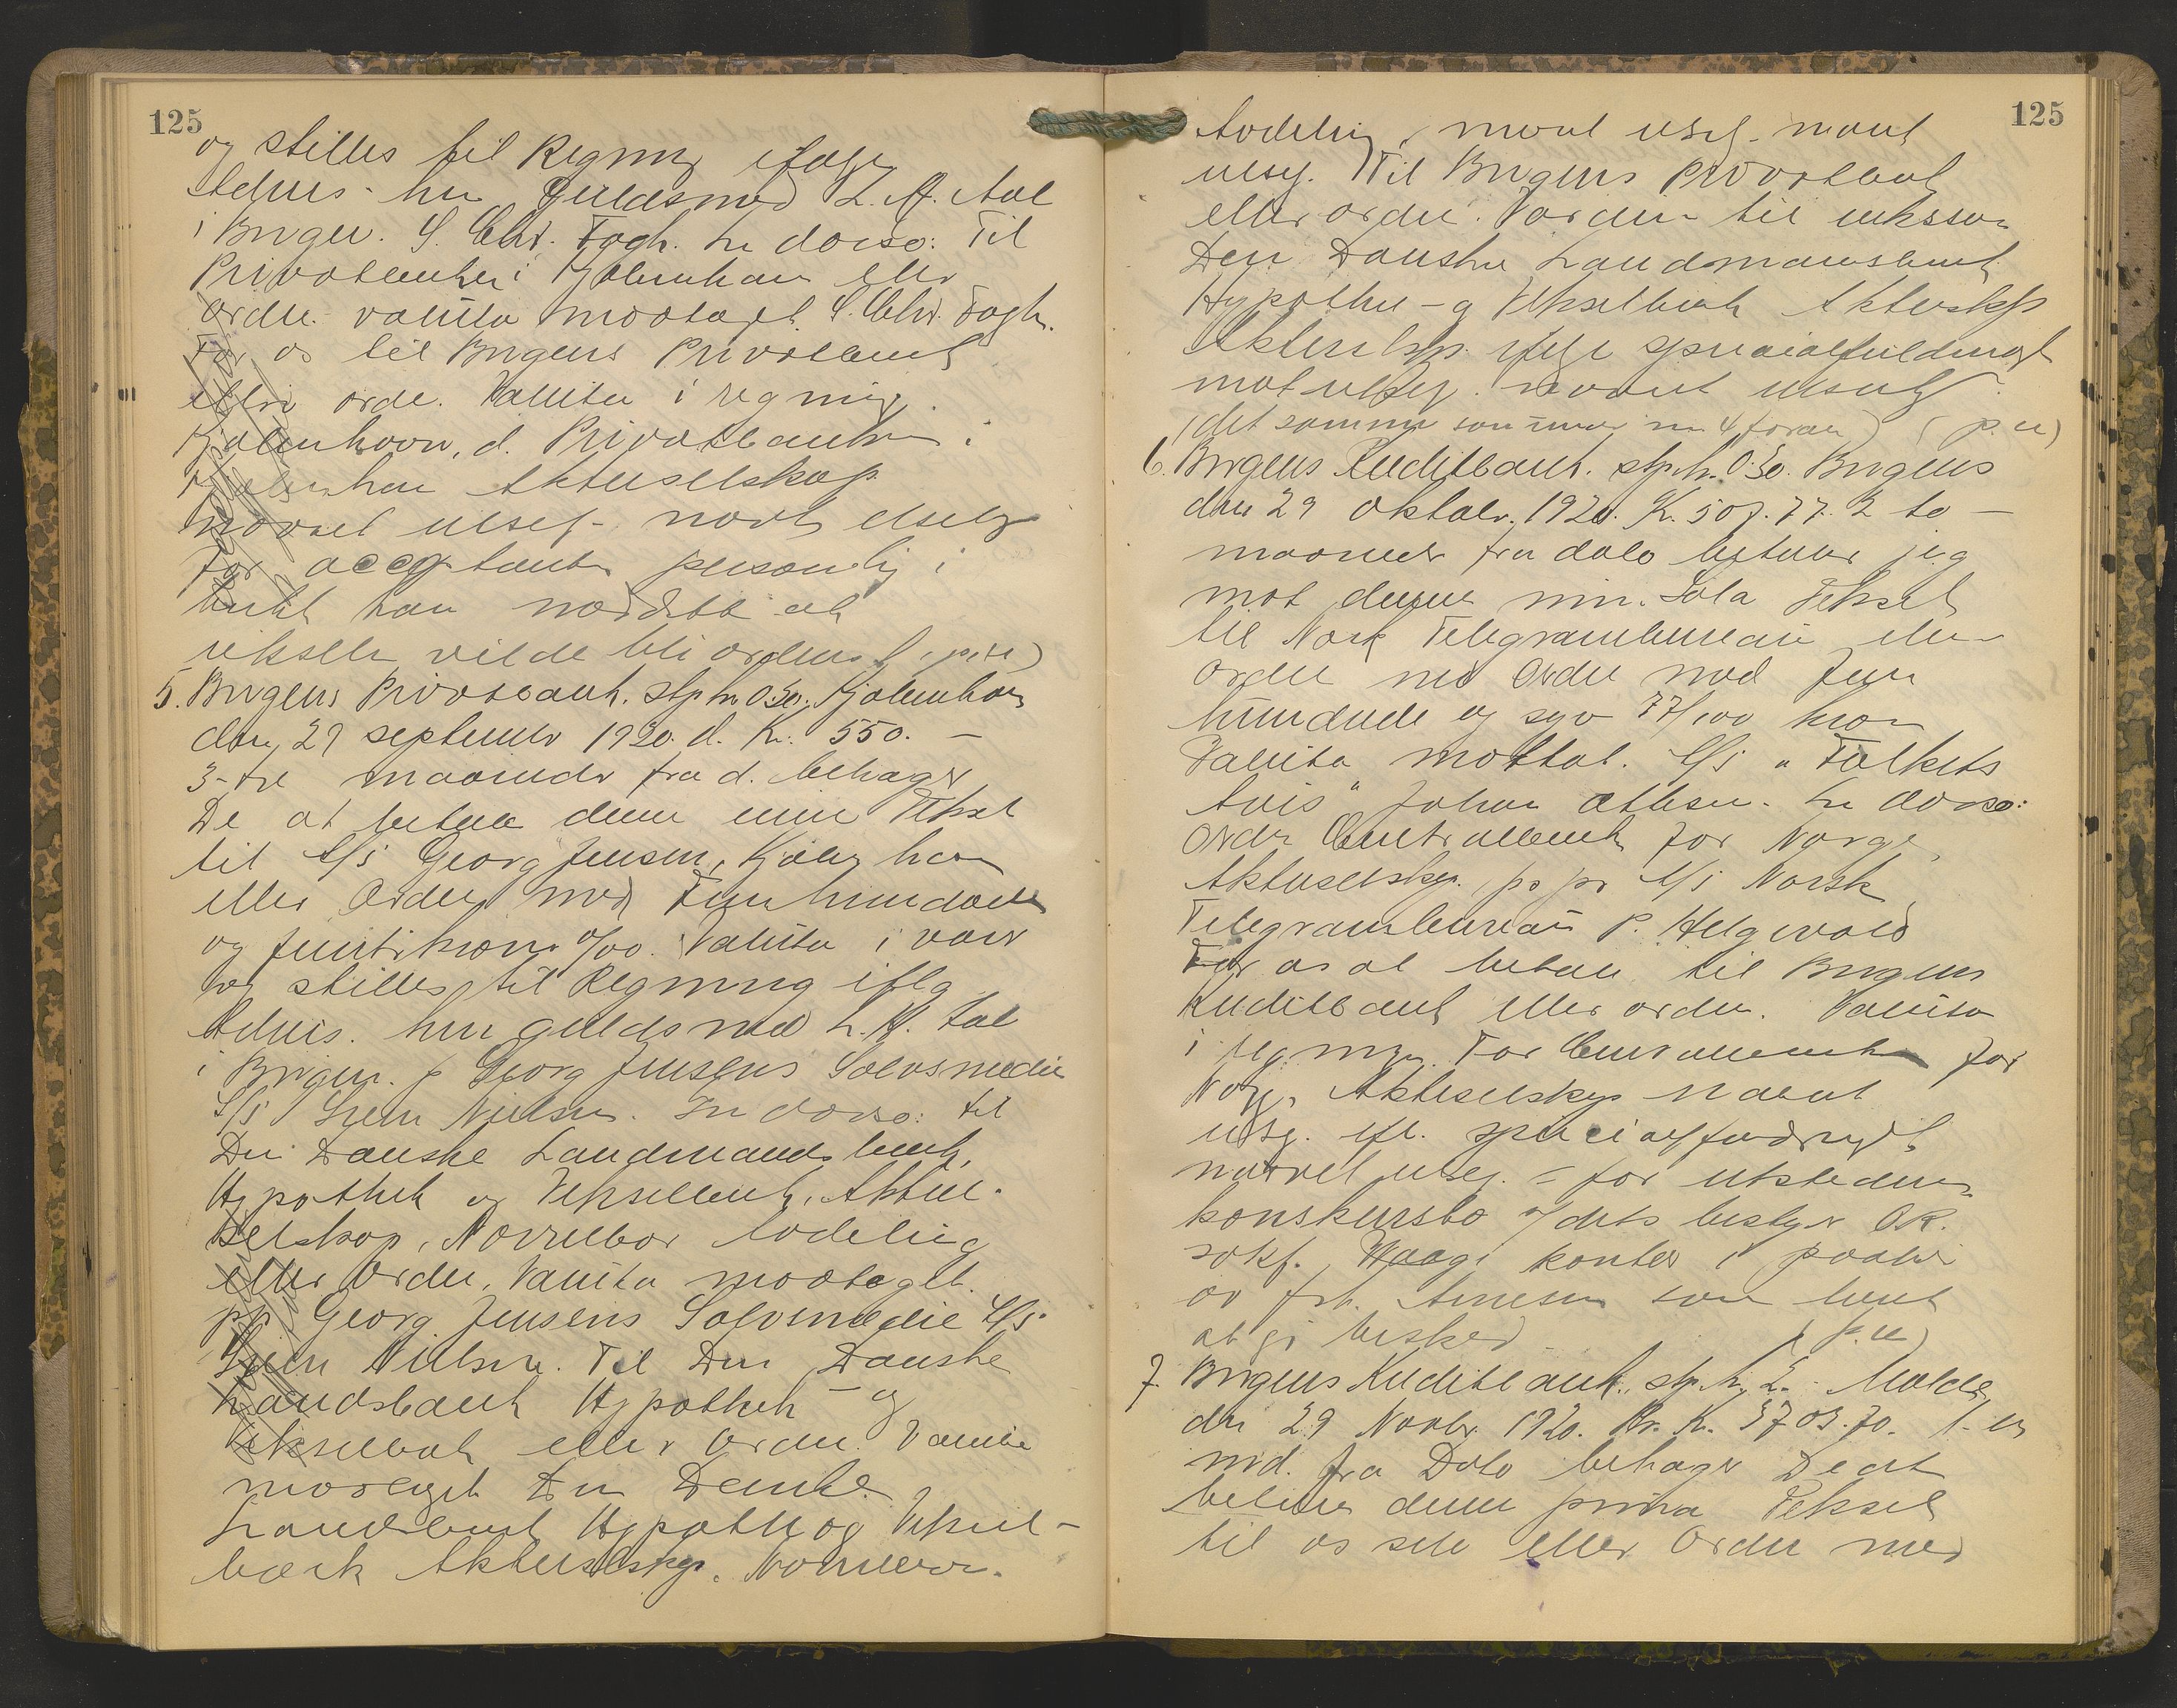 125
og stilles til Regning ifølge
Advis. hr. Guldsmed L. A. Aal
i Bergen. S. Chr. Fogh. In dorso: Til
Privatbanken i Kjøbenhavn eller
ordre. valuta modtaget. S. Chr. Fogh.
For os til Bergens Privatbank
eller ordre. Valuta i regning.
Kjøbenhavn, d. Privatbanken i
Kjøbenhavn Aktieselskap
For acceptanten personlig i
han at
vekselen vilde bli ordnet (p.u)
5. Bergens Privatbank. stp. kr. 0.30. Kjøbenhavn
den 29 september 1920. d. Kr. 550. —
3- tre maaneder fra d. behager
De at betale denne min Veksel
til A/S Georg Jensen, Kjøbenhavn
eller Ordre med Femhundrede
og femti kroner 0/00. Valuta i varer
og stilles til Regning iflg
Advis. herr guldsmed L. A. Aal
i Bergen. p Georg Jensens Sølvsmedie
A/S Svein Nielsen. In dorso: til
Den Danske Landmandsbank,
Hypothek og Vekselbank, Aktie-
selskap, Nørrebro Avdeling
eller Ordre. Valuta modtaget.
pp Georg Jensens Sølvsmedie A/S.
Svein Nielsen. Til Den Danske
Landsbank Hypothek- og
Vekselbank eller Ordre. Valuta
modtaget Den Danske
Landsbank Hypothek og Veksel-
bank Aktieselskap. Nørrebro.
125
Avdeling,
Til Bergens Privatbank
eller ordre. Værdien til inkasso
Den Danske Landmandsbank
Hypothek- og Vekselbank Aktieselskap
Aktieselskap. ifølge specialfuldmagt
(det samme som under nr 4 foran) (p.u)
6. Bergens Kreditbank. stp. kr. 0.30. Bergens
den 29 oktober. 1920. Kr. 507.77. 2 to —
maaneder fra dato betaler jeg
mot denne min Sola Veksel
til Norsk Telegrambureau eller
ordre med Fem
hundrede og syv 77/100 kroner
Valuta mottat. A/S "Folkets
Avis" Johan Ottesen. In dorso:
Ordre Centralbanken for Norge,
Aktieselskap. pp A/S Norsk
Telegrambureau P. Helgevold
For os at betale til Bergens
Kreditbank eller ordre. Valuta
i regning. For Centralbanken for
Norge, Aktieselskap
ifl. specialfuldmagt
for utstederens
konkursbo v/ dets bestyrer OR.
sakf. Waages kontor
av frk. Arnesen som lovet
at gi besked (p.u)
7. Bergens Kreditbank. stp. kr. 2. - Molde
den 29 Novbr 1920. Kr. 3703.70. 1- en
md. fra Dato behager De at
betale denne prima Veksel
til os selv eller Ordre med